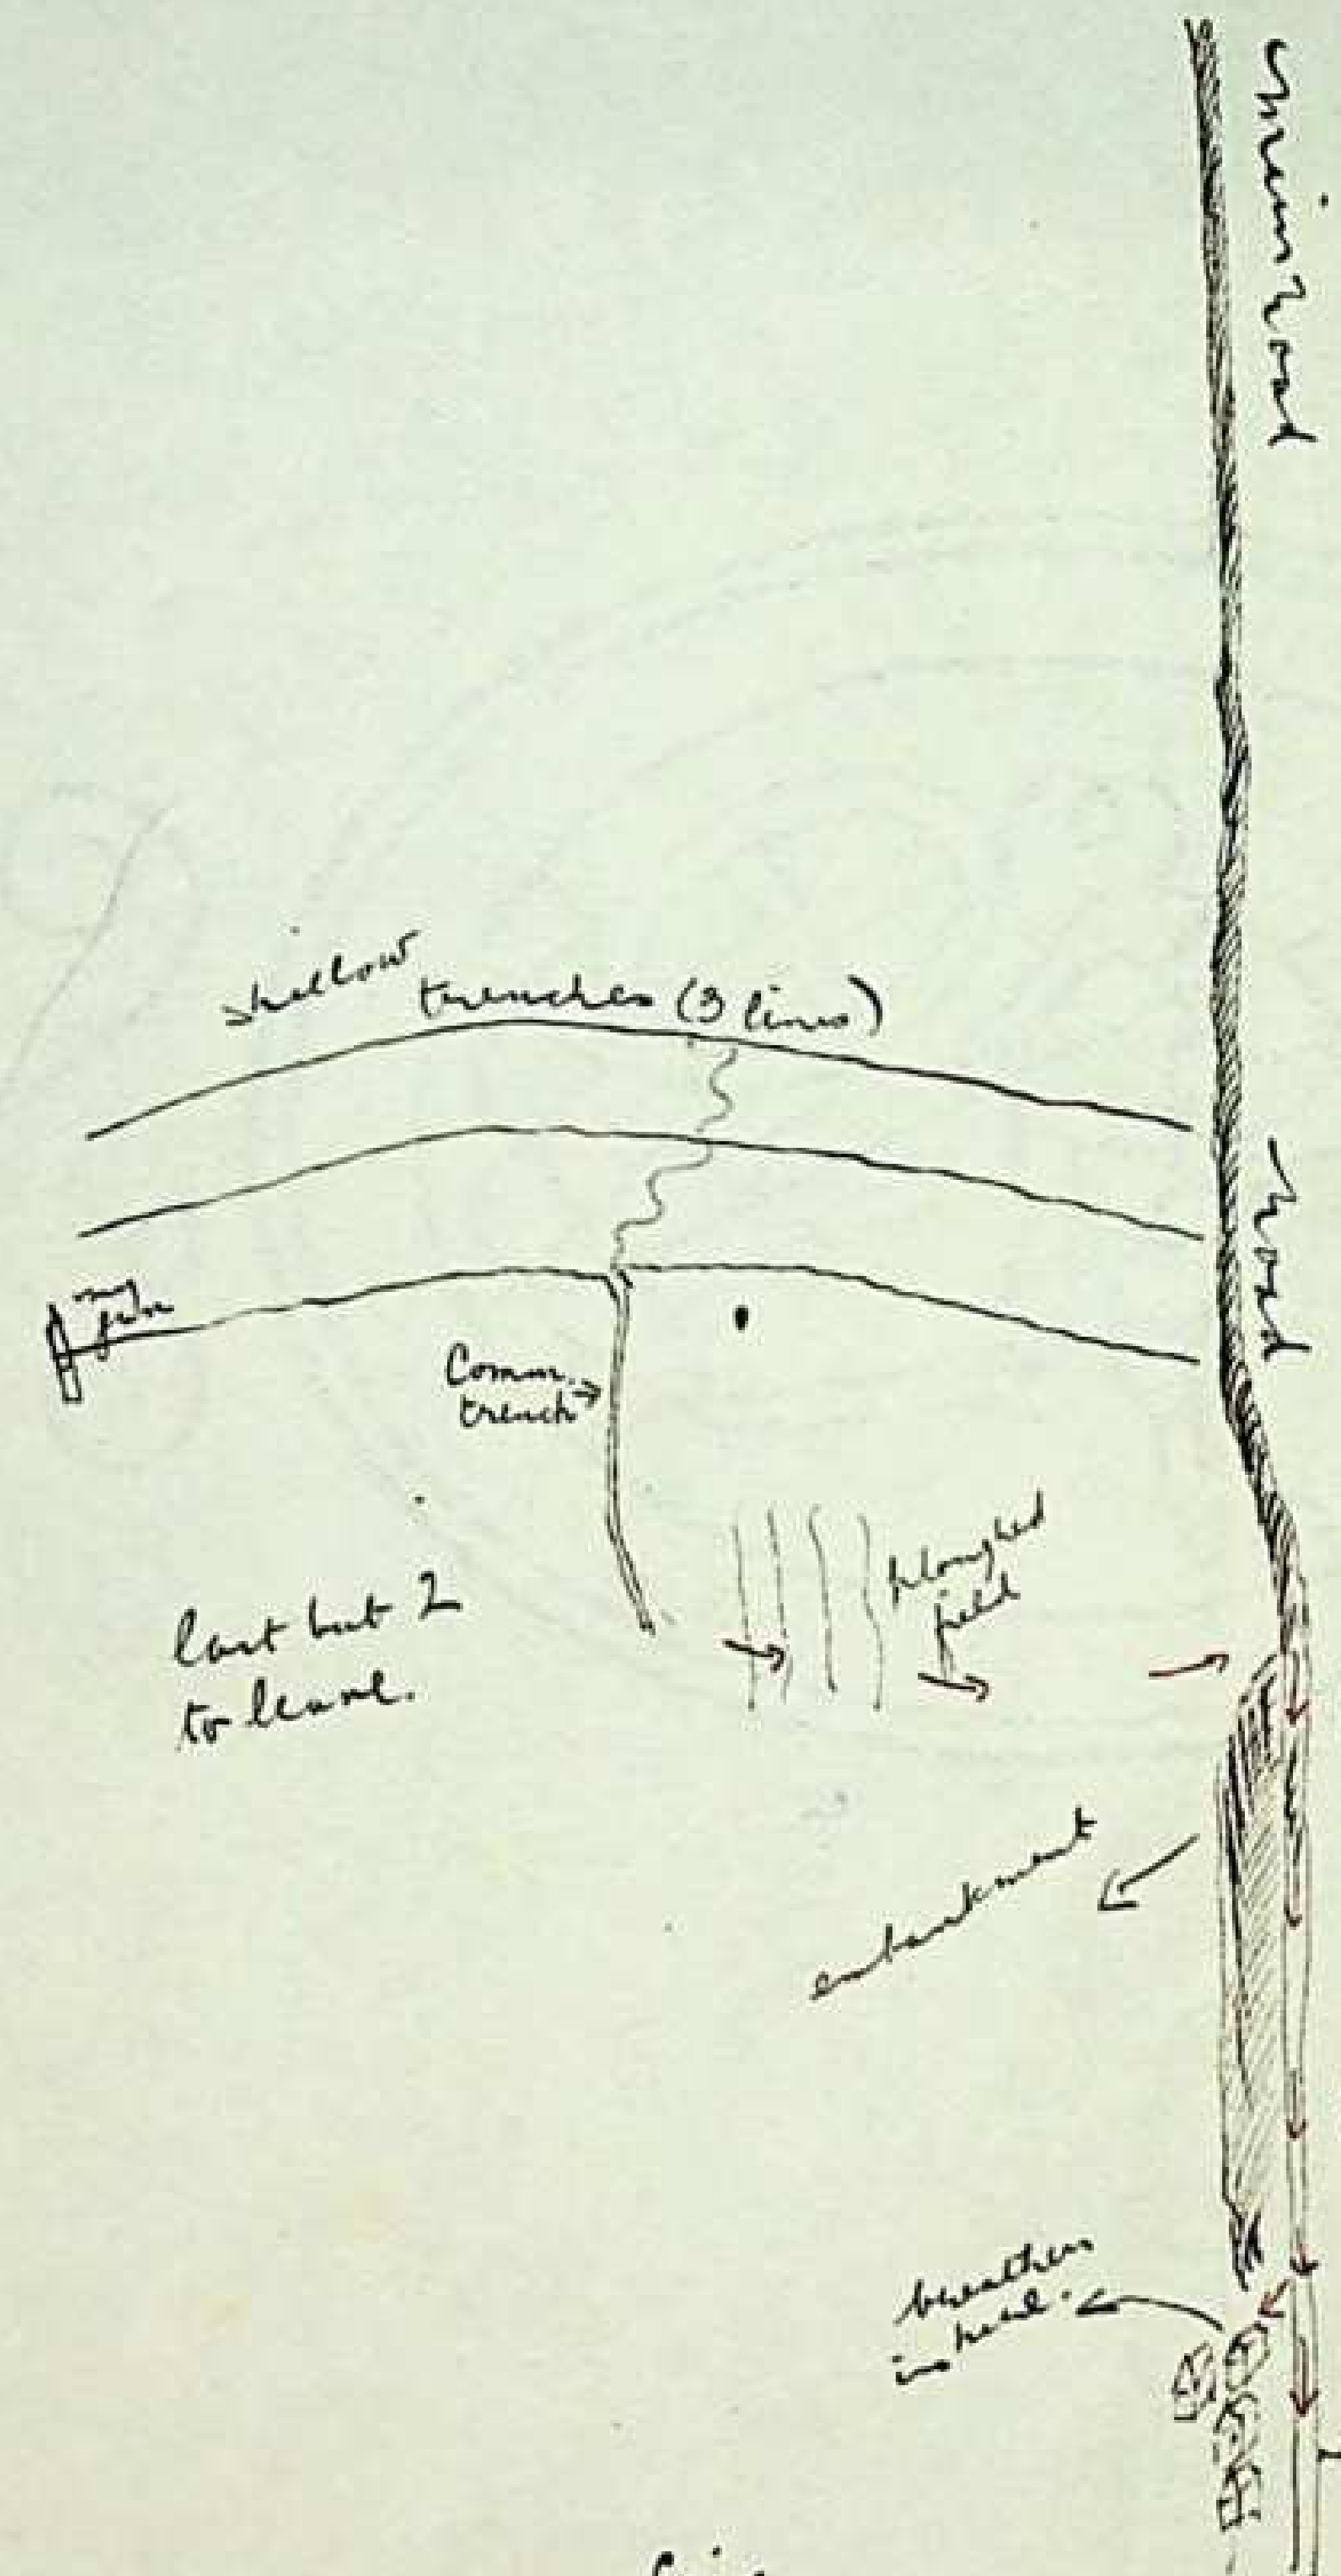 main road
shallow
trenches (3 lines)
road
my
gun
Comm.
trench
ploughed
field
last but 2
to leave.
embankment
breather